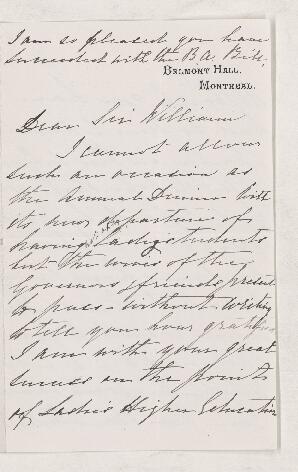 I am so pleased you have
succeeded with the B.A. Bill.
BELMONT HALL.
MONTREAL.
Dear Sir William
I cannot allow
such an occasion as
the Annual Dinner with
its new departure of
having Lady students
but the wives of the
Governors & friends present
to pass - without writing
to tell you how gratified
I am with your great
success on the points
of Ladies Higher Education